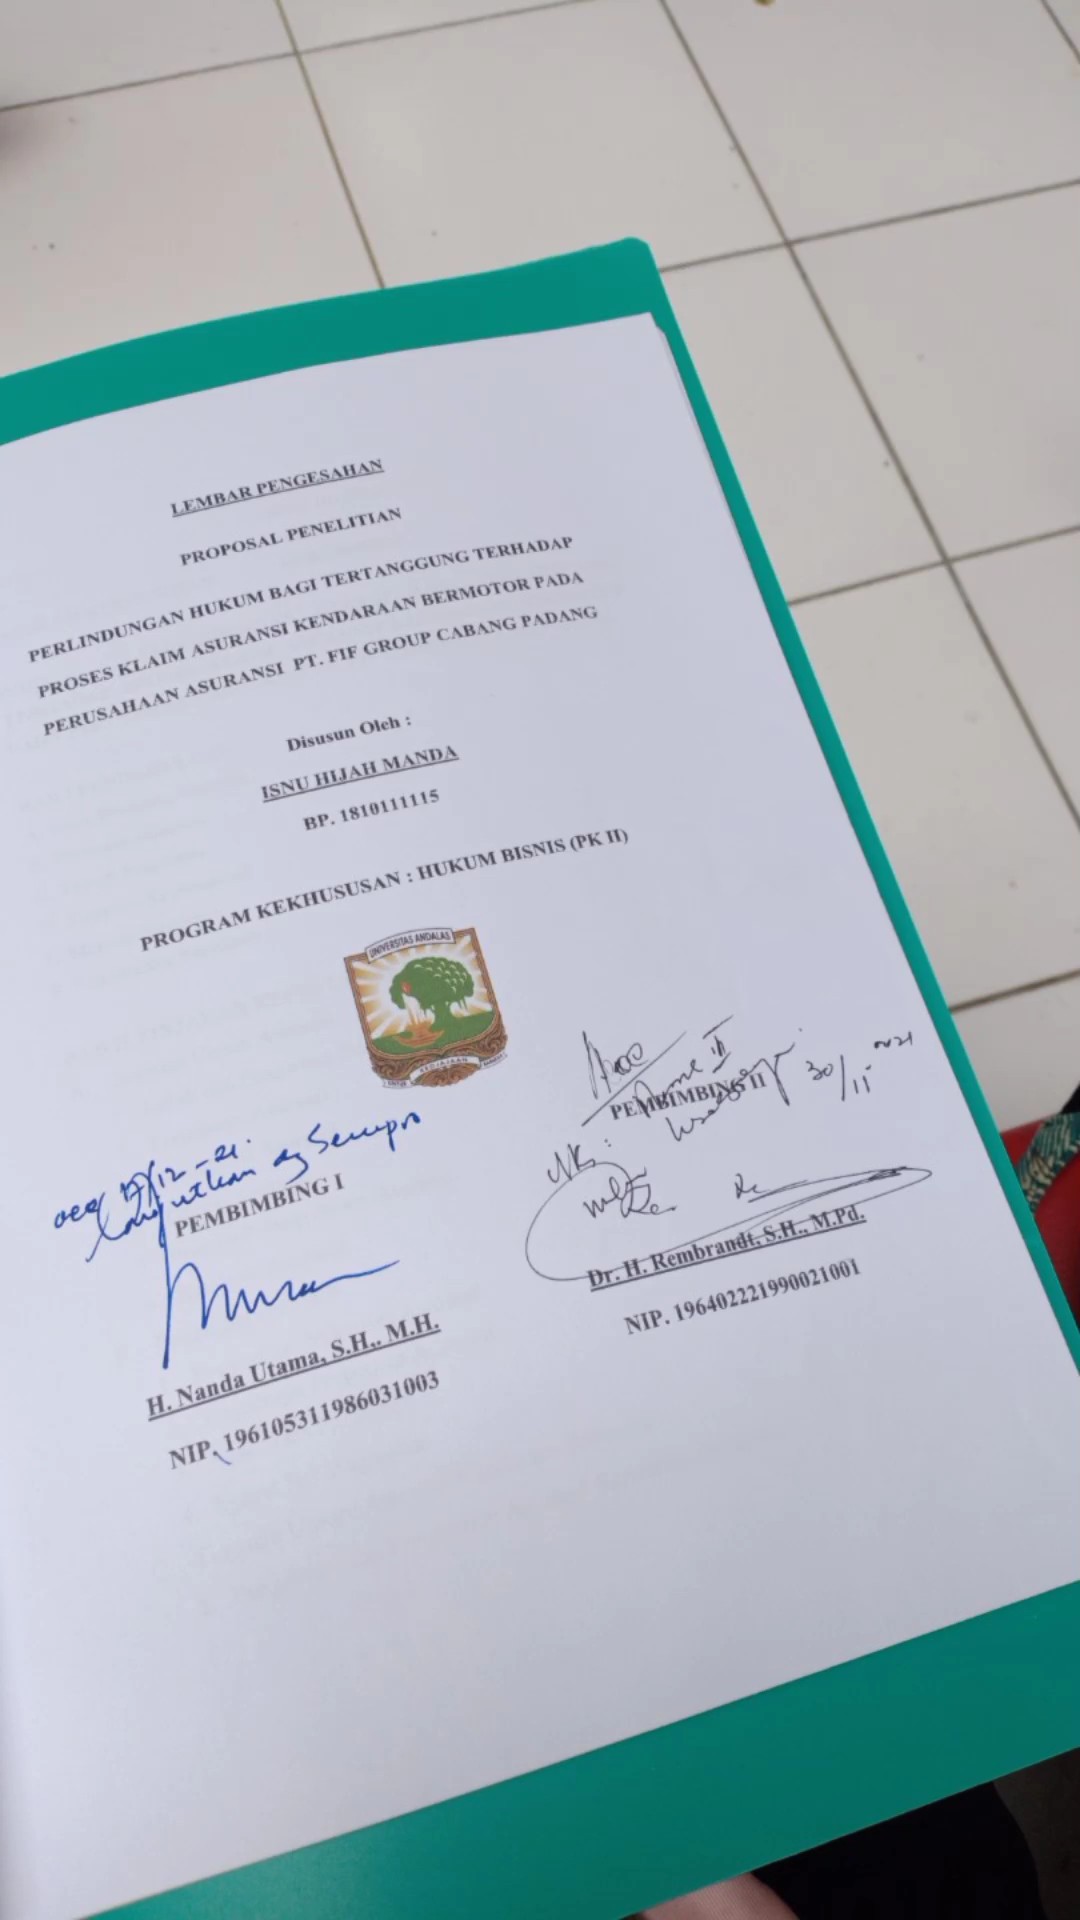 LEMBAR PENGESAHAN
PROPOSAL PENELITIAN
PERLINDUNGAN HUKUM BAGI TERTANGGUNG TERHADAP
PROSES KLAIM ASURANSI KENDARAAN BERMOTOR PADA
PERUSAHAAN ASURANSI PT. FIF GROUP CABANG PADANG
Disusun Oleh :
ISNU HIJAH MANDA
BP. 1810111115
PROGRAM KEKHUSUSAN : HUKUM BISNIS (PK II)
UNIVERSITAS ANDALAS
KEDJAJAAN BANGSA
acc 17/12-21.
Lanjutkan dg Sempro
PEMBIMBING I
H. Nanda Utama, S.H,. M.H.
NIP. 196105311986031003
II 30/11 2021
PEMBIMBING II
Dr. H. Rembrandt, S.H., M.Pd.
NIP. 196402221990021001